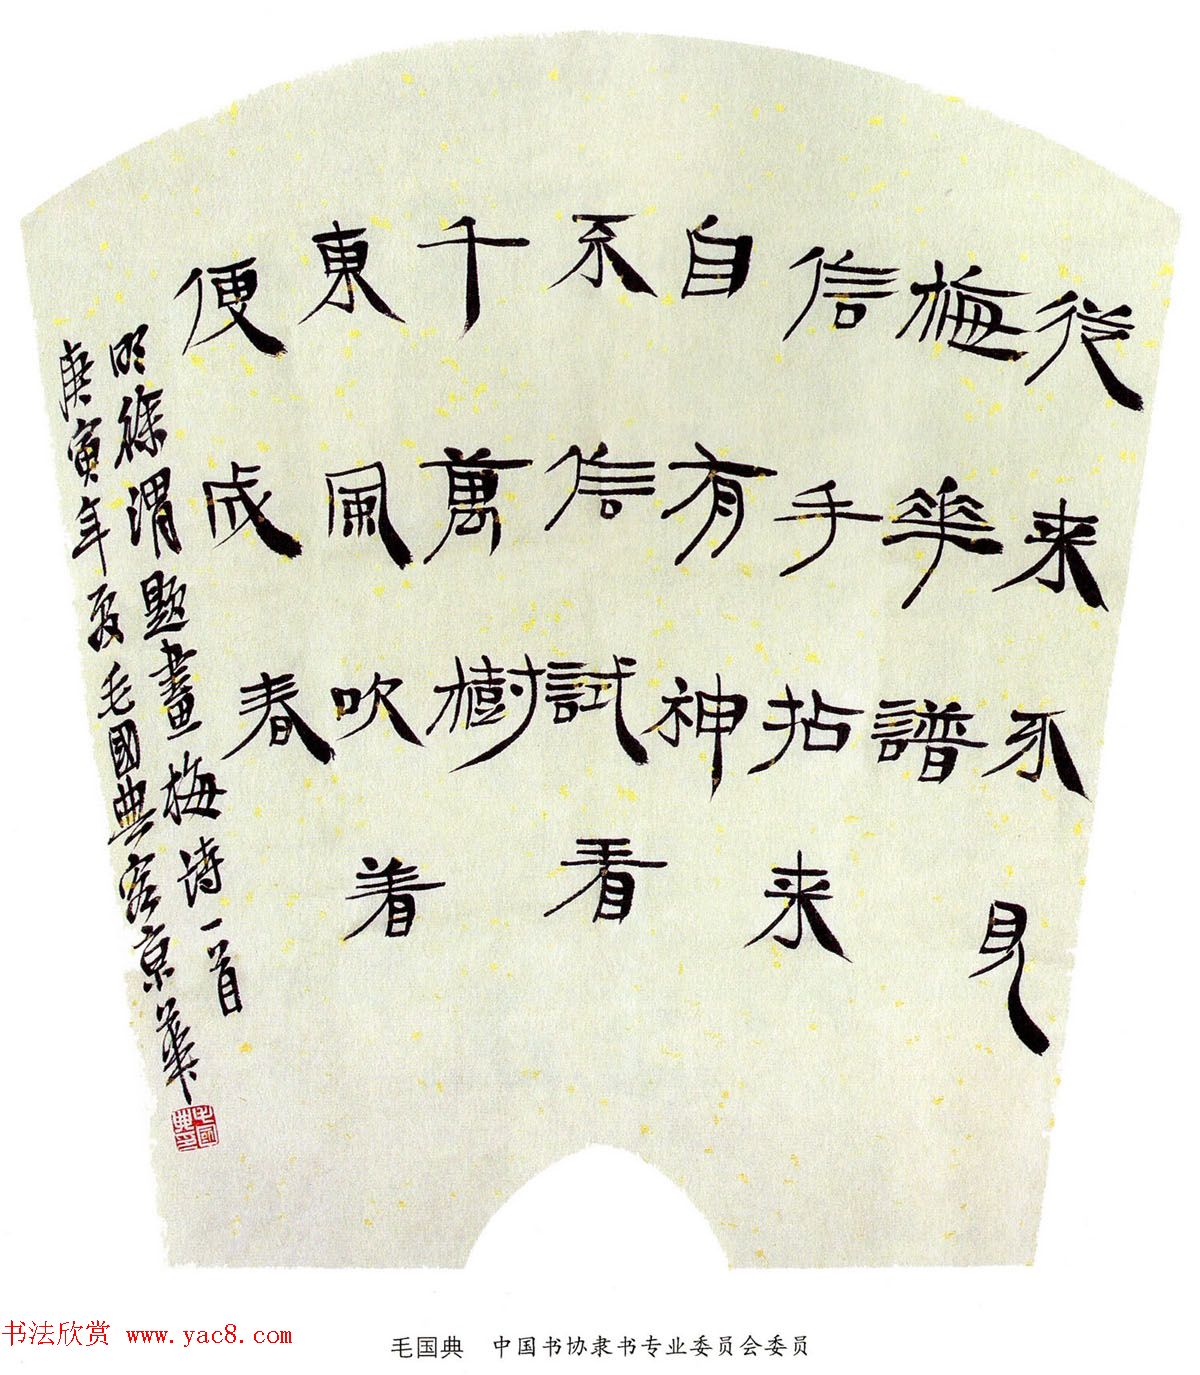 從来不見
梅花譜
信手拈来
自有神
不信試看
千萬樹
東風吹着
便成春
明徐渭題畫梅詩一首
庚寅年夏毛國典客京華
毛國典印
书法欣赏 www.yac8.com
毛国典 中国书协隶书专业委员会委员